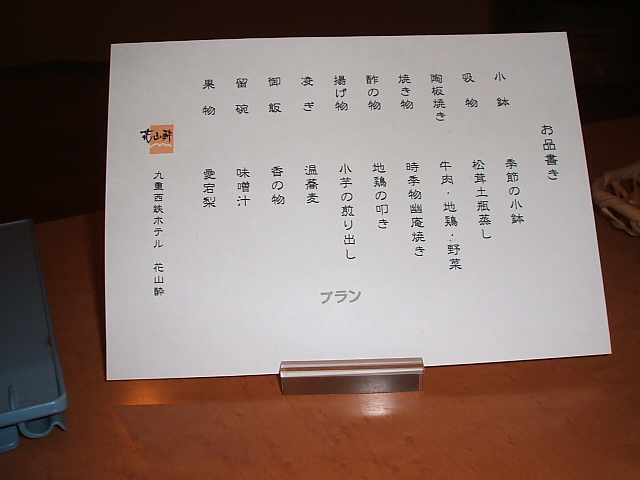 お品書き
小鉢 季節の小鉢
吸物 松茸土瓶蒸し
陶板焼き 牛肉・地鶏・野菜
焼き物 時季物幽庵焼き
酢の物 地鶏の叩き
揚げ物 小芋の煎り出し
凌ぎ 温蕎麦
御飯 香の物
留碗 味噌汁
果物 愛宕梨
花山酔
九重西鉄ホテル 花山酔
プラン